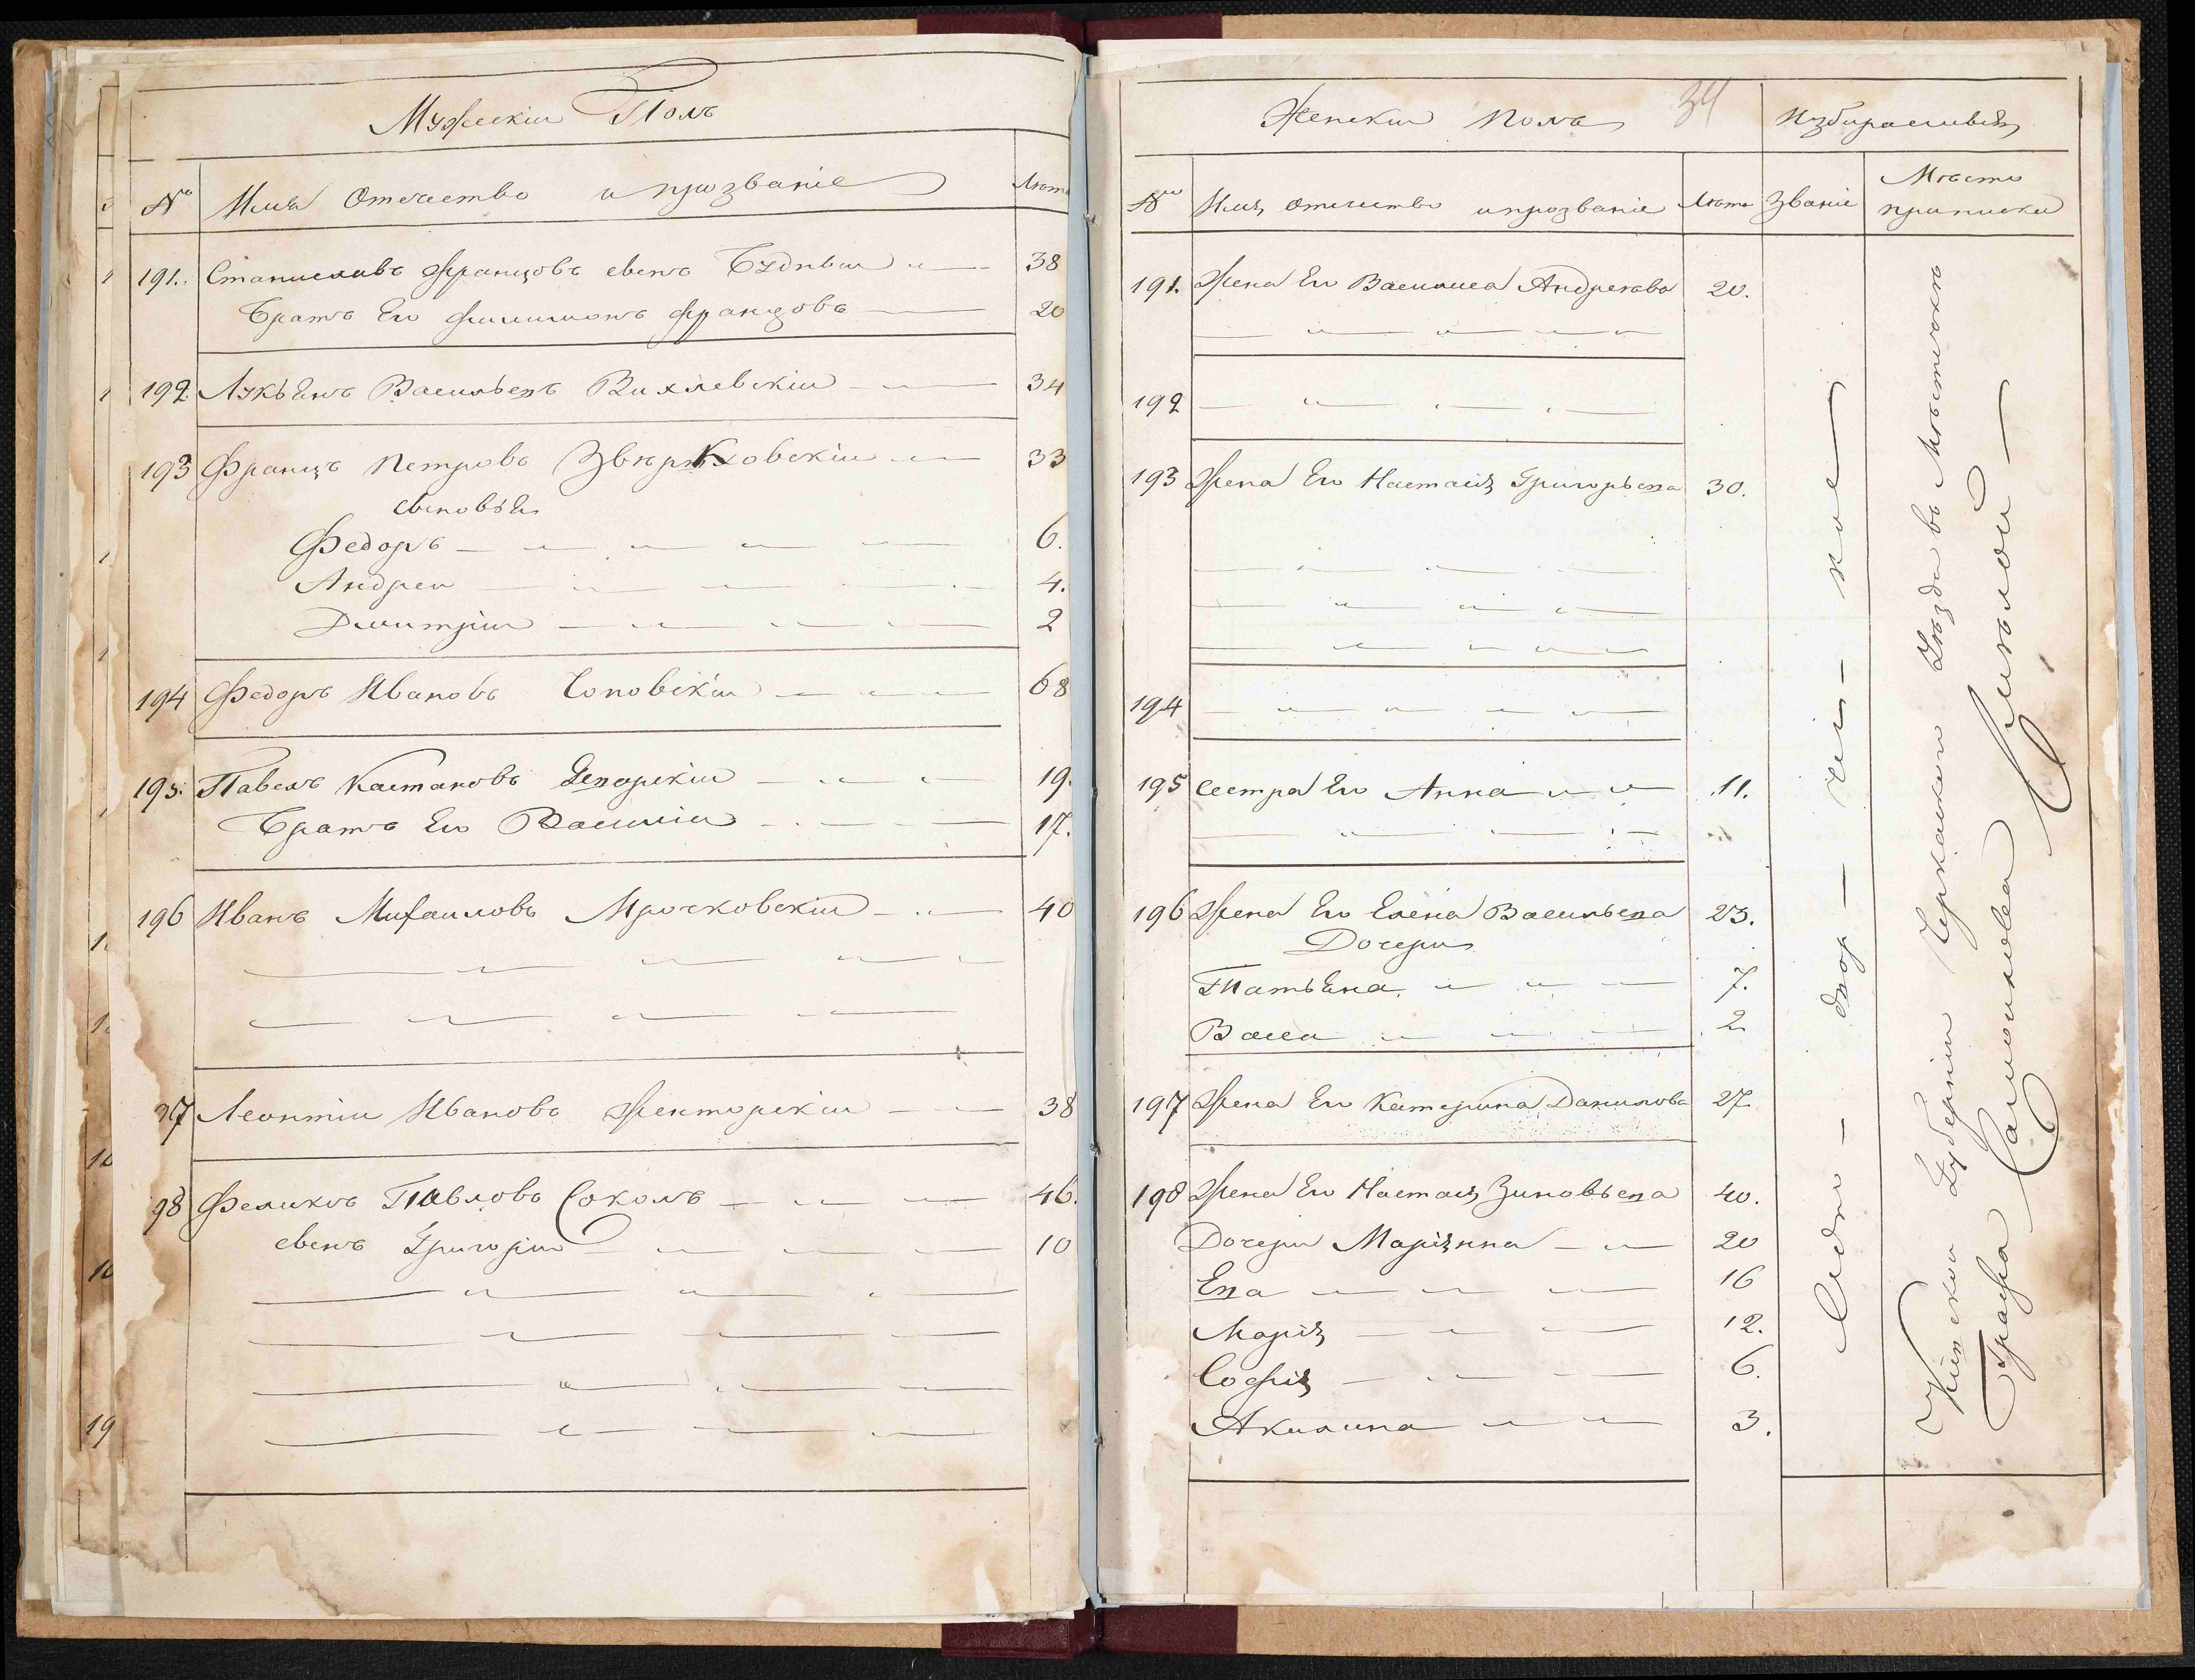 Мужескіи Полъ
№ Имя Отечество и прозваніе Лѣта
191. Станиславъ Францовъ свенъ Будный 38
Братъ Его Филимонъ Францовъ 20
192. Лукьянъ Васильевъ Вихлевскіи 34
193 Францъ Петровъ Звѣржховскіи 33
свеновья
Федоръ 6.
Андреи 4.
Дмитріи 2
194 Федоръ Ивановъ Соповскіи 68
195. Павелъ Кастановъ 19.
Братъ Его Василіи 17.
196 Иванъ Михаиловъ Мрочковскіи 40
97 Леонтіи Ивановъ 38
98 Феликсъ Павловъ Соколъ 46.
свенъ Григоріи 10
Женскіи Полъ 34 Избираемыя
№ Имя отечество и прозваніе Лѣта Званіе Мѣсто приписки
191. Жена Его Василиса Андреева 20.
192
193 Жена Его Настасія Григорьева 30.
194
195 сестра Его Анна 11.
196 Жена Его Елена Васильева 23.
Дочери
Татьяна 7.
Васса 2
197 Жена Его Катерина Данилова 27
198 Жена Его Настасія Зиновьева 40.
Дочери Маріянна 20
Ева 16
Марія 12.
Софія 6.
Акилина 3.
Одно — двор — чес — кое
Кіевскои Губерніи Черкаскаго Уѣзда въ Мѣстечкѣ
Графа Самоилова Смѣлой